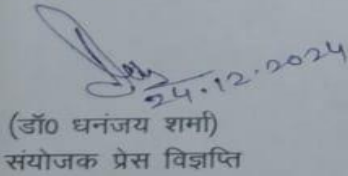 24.12.2024
(डॉ0 धनंजय शर्मा)
संयोजक प्रेस विज्ञप्ति